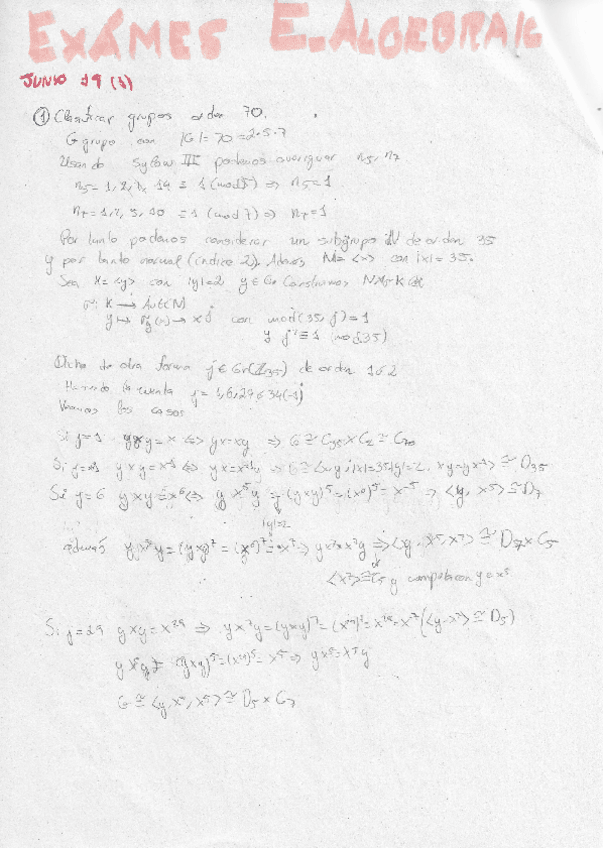 EXÁMES E. ALGEBRAIC
JUNIO 19 (1)
① Clasificar grupos orden 70.
G grupo con |G| = 70 = 2·5·7
Usando Sylow III podemos averiguar n₅, n₇
n₅ = 1, 2, 7, 14 ≡ 1 (mod 5) ⇒ n₅ = 1
n₇ = 1, 2, 5, 10 ≡ 1 (mod 7) ⇒ n₇ = 1
Por tanto podemos considerar un subgrupo N de orden 35
y por tanto normal (índice 2). Además N = <x> con |x| = 35.
Sea K = <y> con |y| = 2 y ∈ G. Construimos
K → Aut(N)
y → → x^j con mcd(35, j) = 1
y j² ≡ 1 (mod 35)
Dicho de otra forma j ∈ de orden 1 ó 2
Haciendo la cuenta j = 1, 6, 29 ó 34 (-1)
Veamos los casos
Si j = 1 yxy = x ⇔ yx = xy ⇒ G ≅ C₃₅ × C₂ ≅ C₇₀
Si j = -1 ≅ D₃₅
Si j = 6 yxy = x⁶ ⇔ y x⁵ y = (yxy)⁵ = (x⁶)⁵ = x⁻⁵ ⇒ <y, x⁵> ≅ D₇
|y|=2
además yx⁷y = (yxy)⁷ = (x⁶)⁷ = x⁷ ⇒ yx⁷ = x⁷y ⇒ <y, x⁵, x⁷> ≅ D₇ × C₅
<x⁷> ≅ C₅ y conmuta con y e x⁵
Si j = 29 yxy = x²⁹ ⇒ yx⁷y = (yxy)⁷ = (x²⁹)⁷ = x⁻⁷ (<y, x⁷> ≅ D₅)
y x⁵ y = (yxy)⁵ = (x²⁹)⁵ = x⁵ ⇒ yx⁵ = x⁵y
G ≅ <y, x⁷, x⁵> ≅ D₅ × C₇